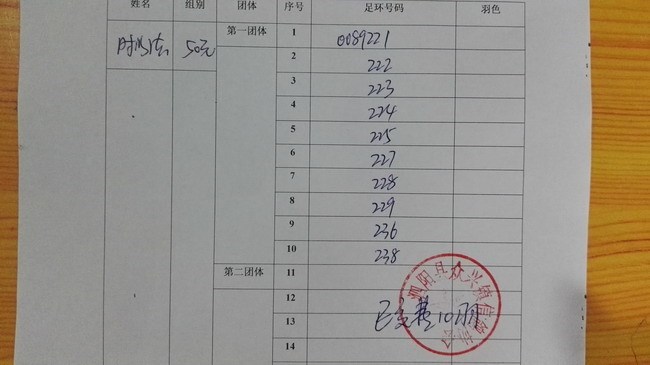 姓名 组别 团体 序号 足环号码 羽色
50元 第一团体 1 0089221
2 222
3 223
4 224
5 225
6 227
7 228
8 229
9 236
10 238
第二团体 11
12
13
14
泗阳县众兴镇信鸽协会